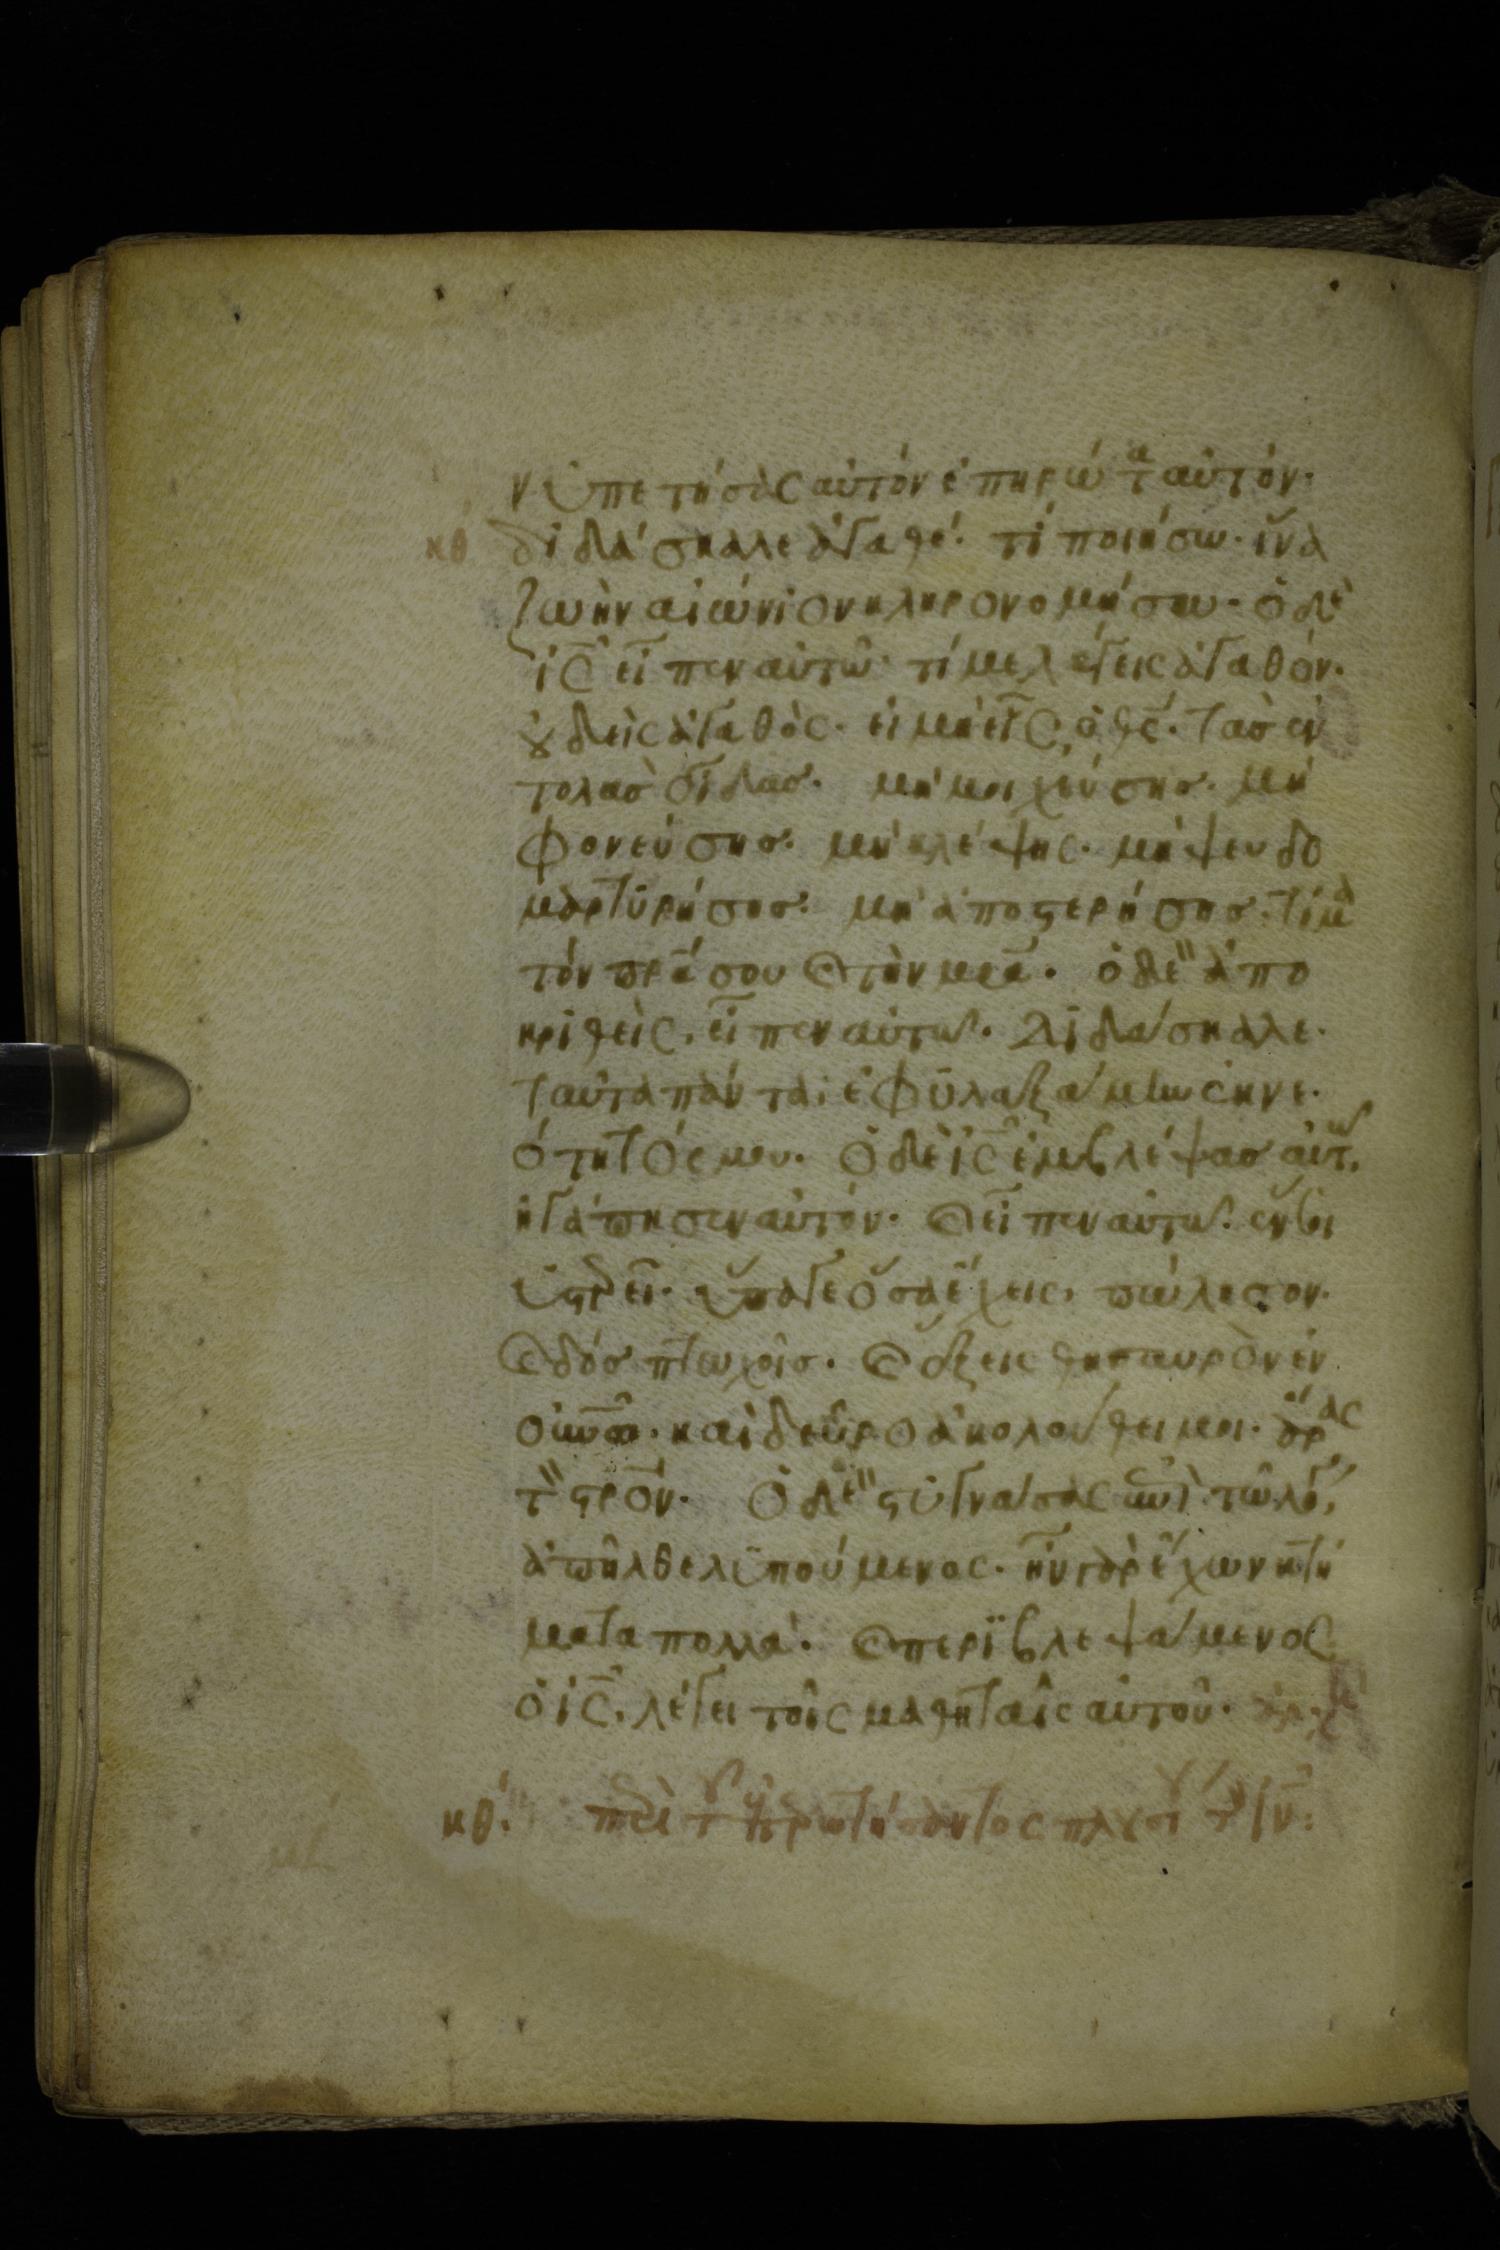 νυπετήσας αὐτὸν ἐπηρώτα αὐτόν·
κθ διδάσκαλε ἀγαθέ· τί ποιήσω· ἵνα
ζωὴν αἰώνιον κληρονομήσω· ὁ δὲ
ις εἶπεν αὐτῶ· τί με λέγεις ἀγαθόν·
οὐδεὶς ἀγαθὸς· εἰ μὴ εἷς ὁ θς· τὰσ ἐν
τολὰσ οἶδασ· μὴ μοιχεύσησ· μὴ
φονεύσησ· μὴ κλέψης· μὴ ψευδο
μαρτυρήσησ· μὴ ἀποστερήσησ· τίμα
τὸν πρα σου καὶ τὴν μρα· ὁ δὲ ἀπο
κριθεὶς, εἶπεν αὐτῶ· διδάσκαλε·
ταῦτα πάντα ἐφυλαξάμην ἐκ νε·
ότητός μου· ὁ δὲ ις ἐμβλέψασ αὐτῶ,
ἠγάπησεν αὐτόν· καὶ εἶπεν αὐτῶ· ἕν σοι
ὑστερεῖ· ὕπαγε ὅσα ἔχεις, πώλησον·
καὶ δόσ πτωχοῖσ· καὶ ἕξεις θησαυρὸν ἐν
οὐνω· καὶ δεῦρο ἀκολούθει μοι· ἄρας
τ στρον· ὁ δὲ στυγνάσας ἐπὶ τῶ λό,
ἀπῆλθε λυπούμενος· ἦν γὰρ ἔχων κτή
ματα πολλά· καὶ περιβλεψάμενος
ὁ ις, λέγει τοῖς μαθηταῖς αὐτοῦ·
κθ· περὶ τοῦ ἐπερωτήσαντος πλουσί τ ιν: